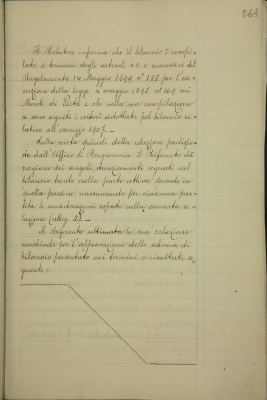 263
Il Relatore informa che il bilancio è compi-
lato a termini degli articoli 40 e successivi del
Regolamento 14 Maggio 1899 N° 185 per l'ese-
cuzione della legge 4 maggio 1898 N° 169 sui
Monti di Pietà e che nella sua compilazione
si sono seguiti i criteri adottati pel bilancio re-
lativo all'esercizio 1907. —
Sulla scorta quindi della relazione predispo-
sta dall'Ufficio di Ragioneria il Referente dà
ragione dei singoli stanziamenti segnati nel
bilancio tanto nella parte attiva quanto in
quella passiva, riassumendo per ciascuna par-
tita le considerazioni esposte nella connata re-
lazione (alleg. B). —
Il Referente ultimata la sua relazione
conchiude per l'approvazione dello schema di
bilancio presentato nei termini e risultati se-
guenti: